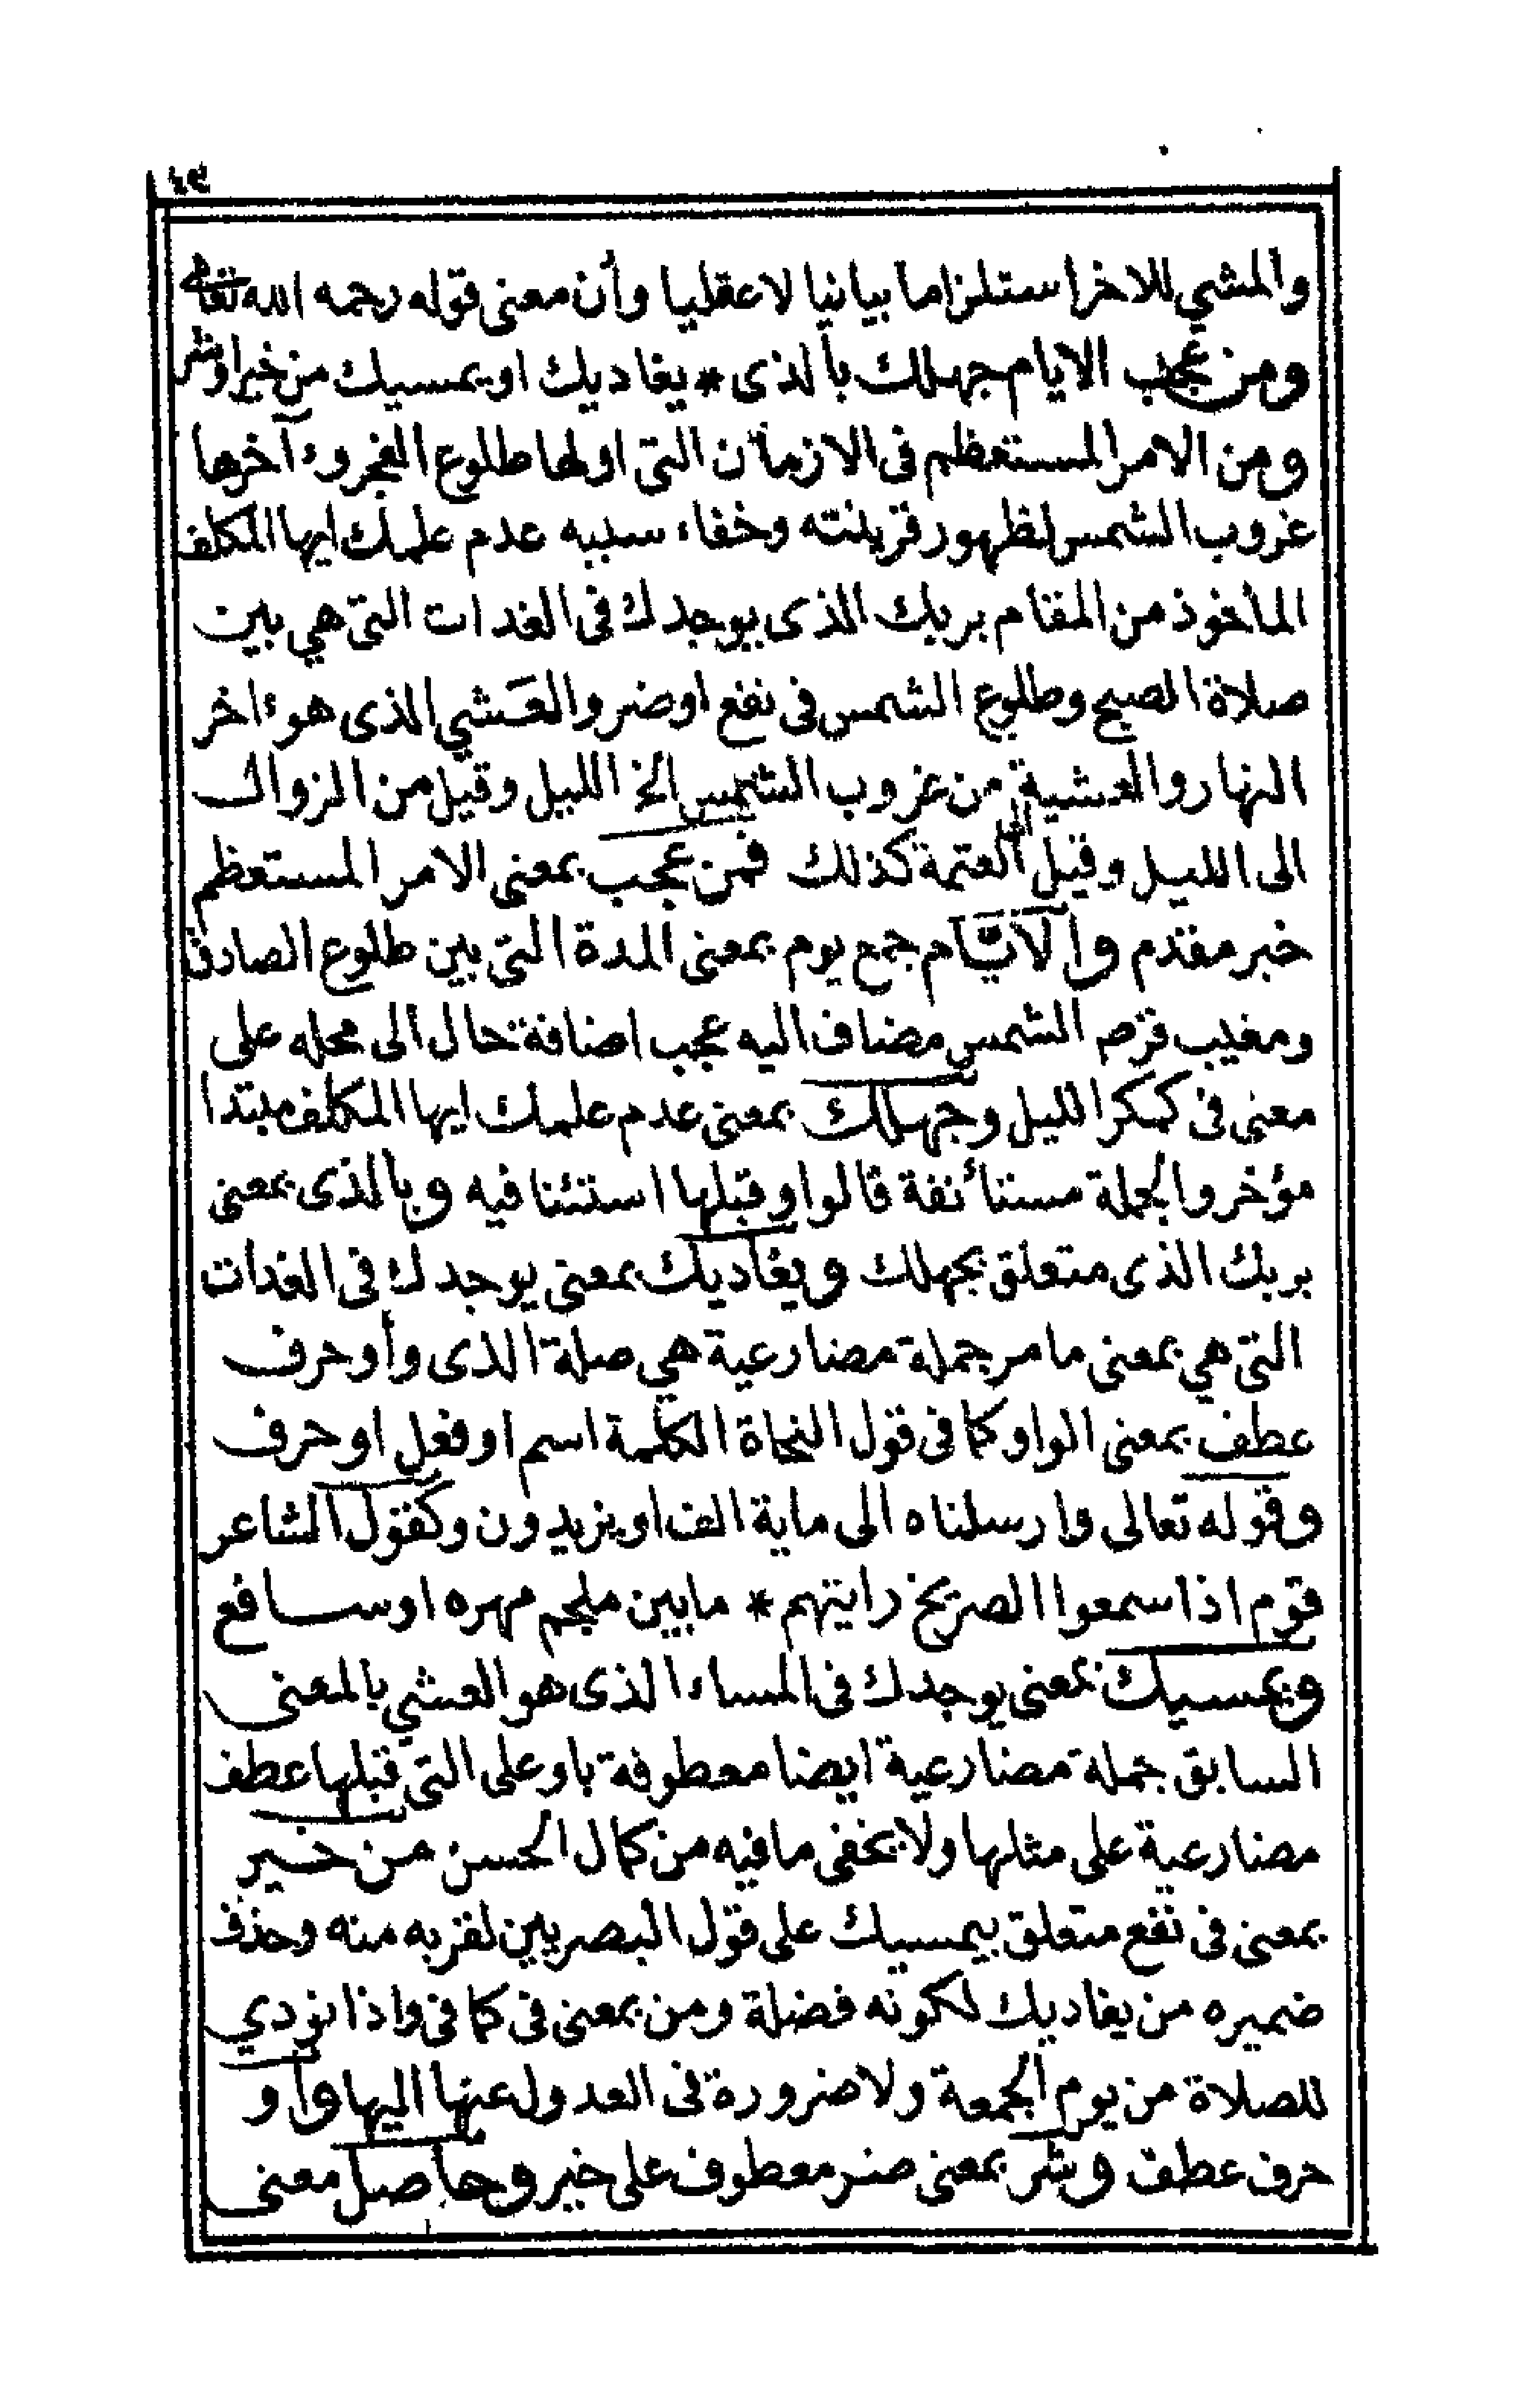 ٤٩
والمشي للاخر استلزاما بيانيا لا عقليا وأن معنى قوله رحمه الله تعالى
ومن عجب الايام جهلك بالذى * يغاديك او يمسيك من خير اوشر
ومن الامر المستعظم فى الازمان التى اولها طلوع الفجر وءآخرها
غروب الشمس لظهور قرينته وخفاء سببه عدم علمك ايها المكلف
المأخوذ من المقام بربك الذى يوجدك فى الغدات التى هي بين
صلاة الصبح وطلوع الشمس فى نفع اوضر والعَشي الذى هو ءاخر
النهار والعشية من غروب الشمس الخ الليل وقيل من الزوال
الى الليل وقيل الى العتمة كذلك فمن عجب بمعنى الامر المستعظم
خبر مقدم والايَّام جمع يوم بمعنى المدة التى بين طلوع الصادق
ومغيب قرص الشمس مضاف اليه عجب اضافة حال الى محله على
معنى فى كمكر الليل وجهلك بمعنى عدم علمك ايها المكلف مبتدا
مؤخر والجملة مستأنفة قالوا وقبلها استئنافيه وبالذى بمعنى
بربك الذى متعلق بجهلك ويغاديك بمعنى يوجدك فى الغدات
التى هي بمعنى ما مر جملة مضارعية هي صلة الذى وأو حرف
عطف بمعنى الواو كما فى قول النحاة الكلمة اسم او فعل او حرف
وقوله تعالى وارسلناه الى ماية الف او يزيدون وكقول الشاعر
قوم اذا سمعوا الصريخ رايتهم * مابين ملجم مهره او سافع
ويمسيك بمعنى يوجدك فى المساء الذى هو العشي بالمعنى
السابق جملة مضارعية ايضا معطوفة باو على التى قبلها عطف
مضارعية على مثلها ولا يخفى مافيه من كمال الحسن من خير
بمعنى فى نفع متعلق بيمسيك على قول البصريين لقربه منه وحذف
ضميره من يغاديك لكونه فضلة ومن بمعنى فى كما فى واذا نودي
للصلاة من يوم الجمعة ولا ضرورة فى العدول عنها اليها وأو
حرف عطف وشر بمعنى ضر معطوف على خير وحاصل معنى